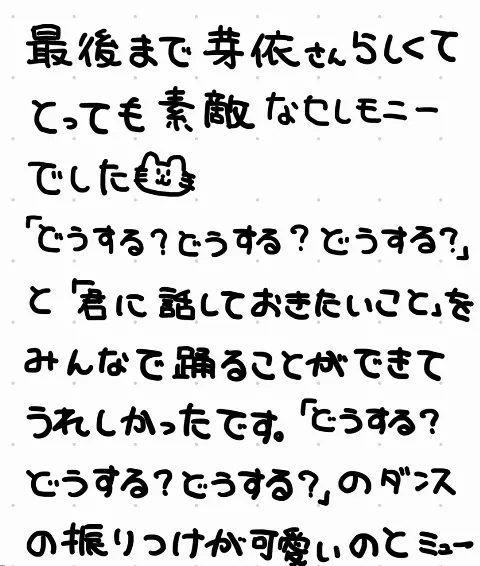 最後まで芽依さんらしくて
とっても素敵なセレモニー
でした
「どうする?どうする?どうする?」
と「君に話しておきたいこと」を
みんなで踊ることができて
うれしかったです。「どうする?
どうする?どうする?」のダンス
の振りつけが可愛いのとミュー